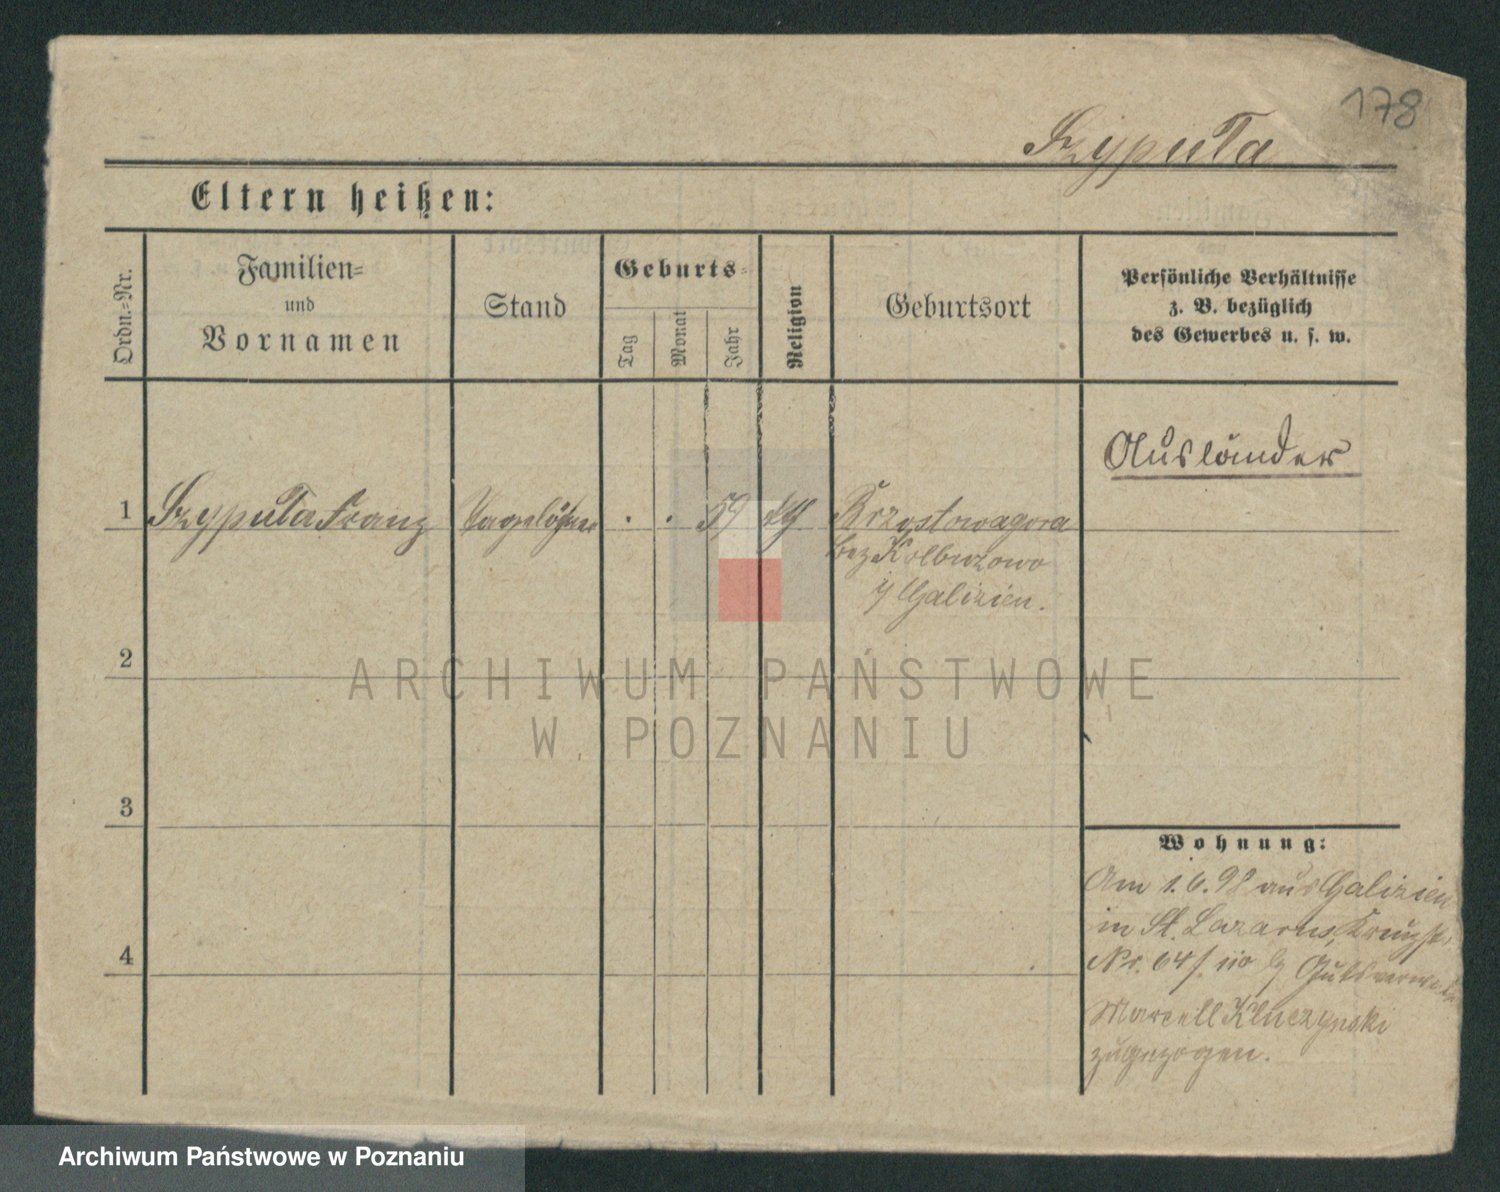 178
Szyputa
Eltern heißen:
Ordn.=Nr.
Familien=
und
Vornamen
Stand
Geburts=
Tag
Monat
Jahr
Religion
Geburtsort
Persönliche Verhältnisse
z. B. bezüglich
des Gewerbes u. s. w.
Ausländer
1 Szyputa Franz Tagelöhner . . 59 Krzostowagora
bez Kolbuzowo
Galizien.
2
3
4
Wohnung:
Am 1.6.98 aus Galizien
in St. Lazarus, Kreuzstr.
Nr. 64 Gutsverwalter
Marcell Kluczynski
zugezogen.
ARCHIWUM PAŃSTWOWE
W POZNANIU
Archiwum Państwowe w Poznaniu